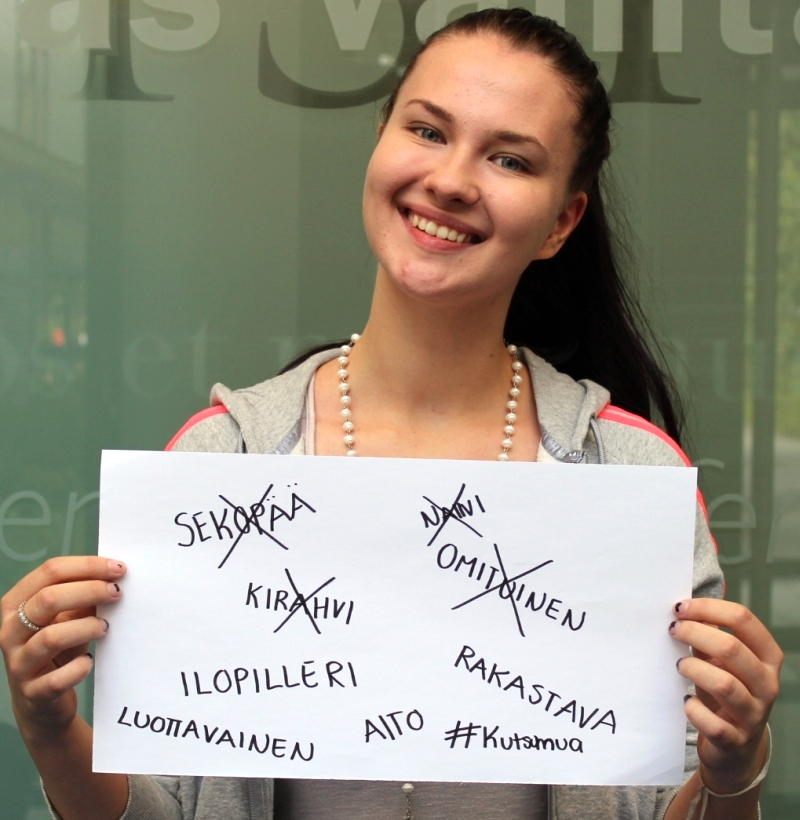 as valit
SEKOPÄÄ
OMITUINEN
KIRAHVI
ILOPILLERI
RAKASTAVA
LUOTTAVAINEN
AITO
#Kutsmua